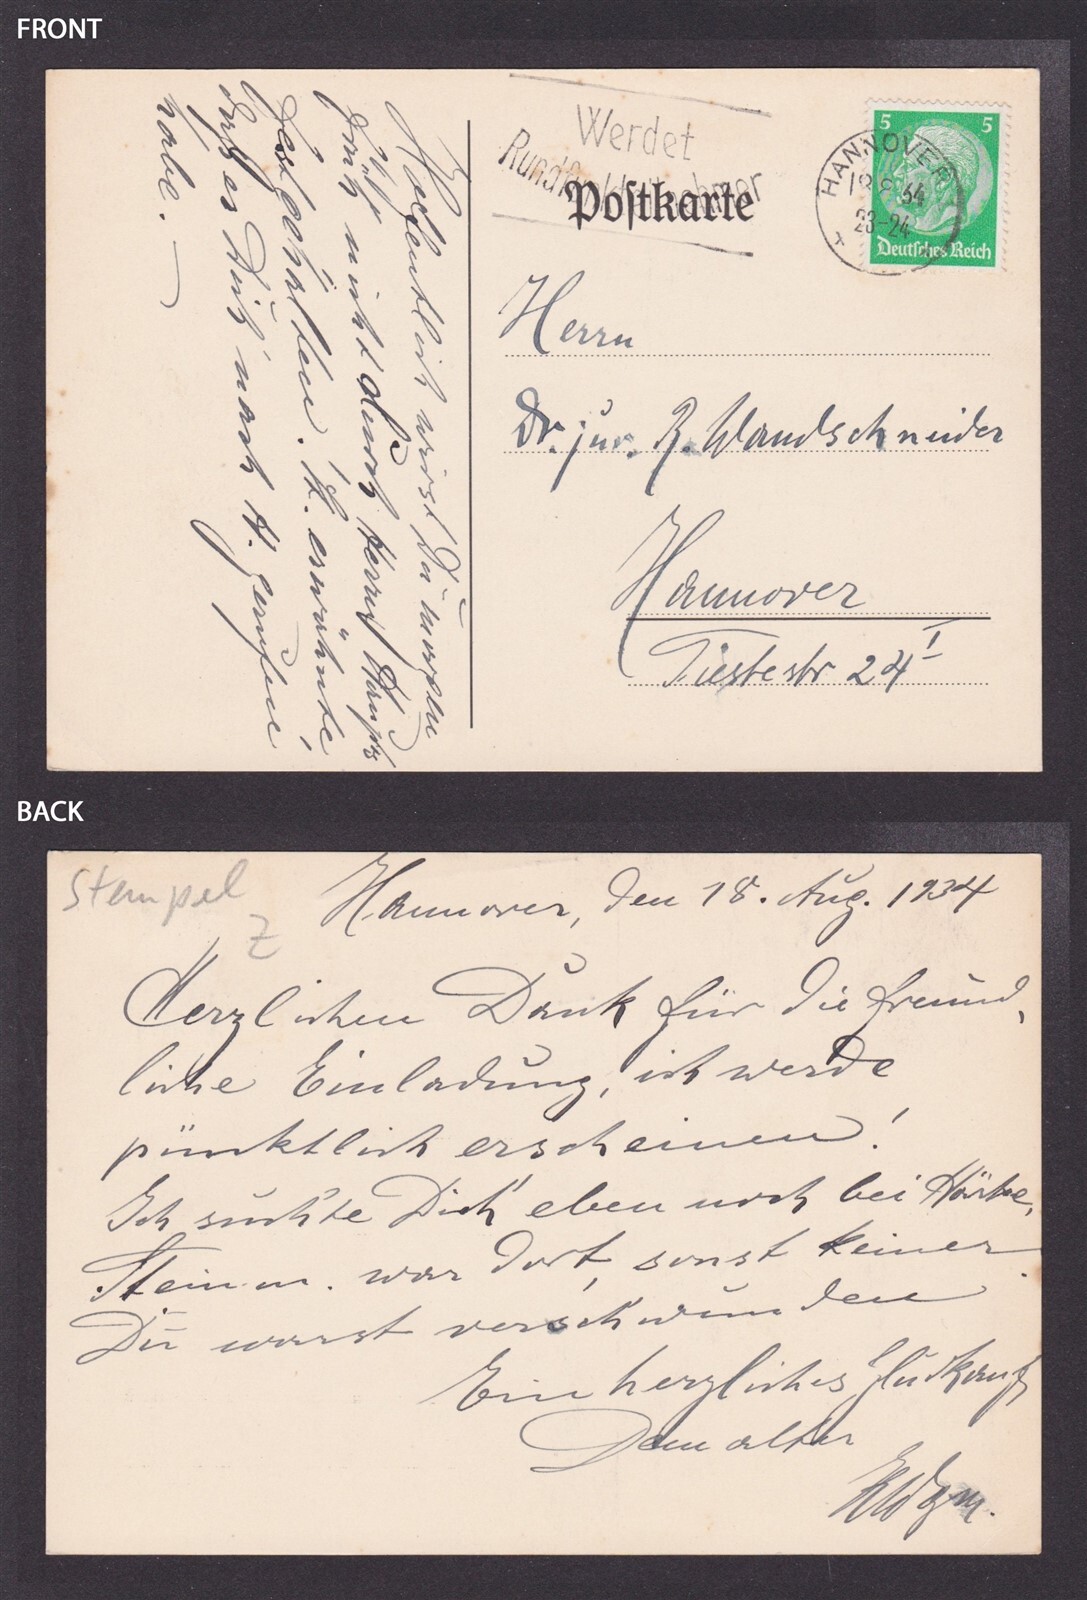 FRONT
Werdet
Rundfunkteilnehmer
Postkarte
HANNOVER
18.8.34
23-24
5 5
Deutsches Reich
Herrn
Dr. jur. R. Wandschneider
Hannover
Tiestestr 24 I
Hoffentlich wirst Du morgen
früh nicht durch
festgehalten. K. erwähnte,
daß es Dich nach H. gerufen
habe. —
BACK
Stempel
Z
Hannover, den 18. Aug. 1934
Herzlichen Dank für die freund-
liche Einladung, ich werde
pünktlich erscheinen!
Ich suchte Dich eben noch bei
Steinm. war dort, sonst keiner.
Du warst verschwunden
Ein herzliches Glückauf
Dein alter